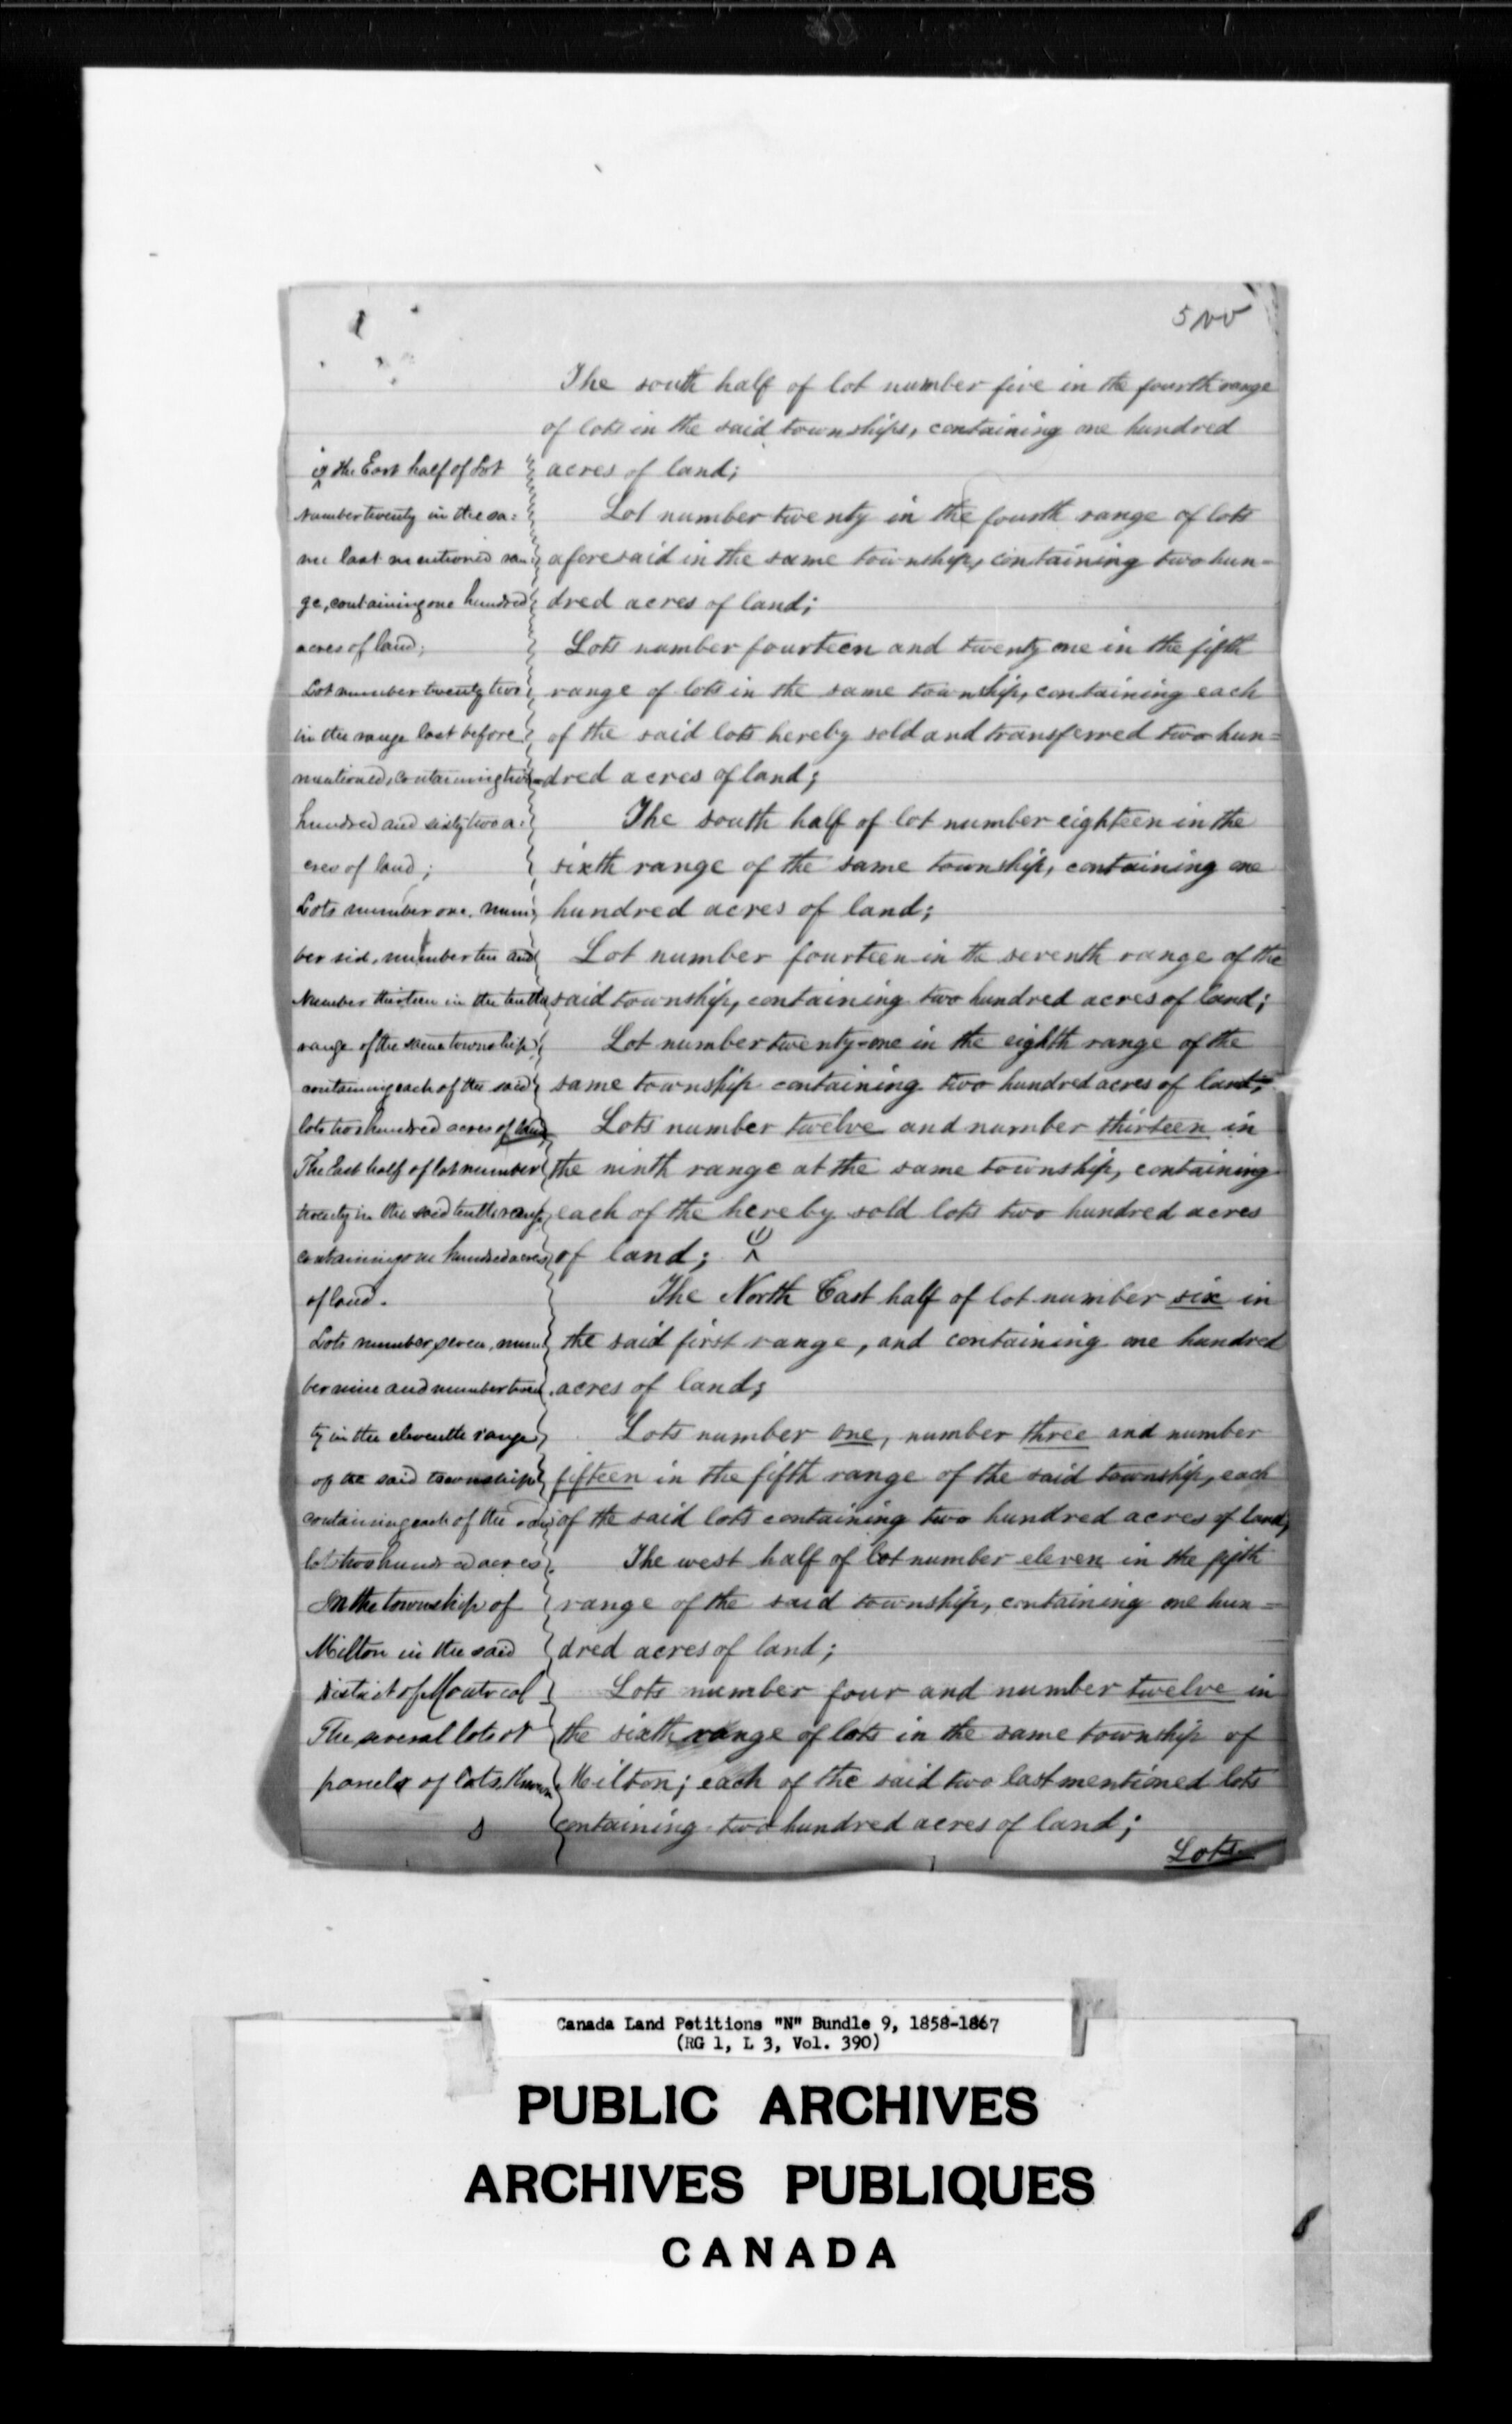 The south half of lot number five in the fourth range
of lots in the said townships, containing one hundred
acres of land;
Lot number twenty in the fourth range of lots
aforesaid in the same township, containing two hun-
dred acres of land;
Lots number fourteen and twenty one in the fifth
range of lots in the same township, containing each
of the said lots hereby sold and transferred two hun=
dred acres of land;
The south half of lot number eighteen in the
sixth range of the same township, containing one
hundred acres of land;
Lot number fourteen in the seventh range of the
said township, containing two hundred acres of land;
Lot number twenty-one in the eighth range of the
same township containing two hundred acres of land;
Lots number twelve and number thirteen in
the ninth range at the same township, containing
each of the hereby sold lots two hundred acres
of land;
The North East half of lot number six in
the said first range, and containing one hundred
acres of land;
Lots number one, number three and number
fifteen in the fifth range of the said township, each
of the said lots containing two hundred acres of land;
The west half of lot number eleven in the fifth
range of the said township, containing one hun=
dred acres of land;
Lots number four and number twelve in
the sixth range of lots in the same township of
Milton; each of the said two last mentioned lots
containing two hundred acres of land;
Lots
the East half of Lot
number twenty in the sa=
me last mentioned ran
ge, containing one hundred
acres of land;
Lot number twenty two
in the range last before
mentioned, containing two
hundred and sixty two a=
cres of land;
Lots number one, num
ber six, number ten and
Number thirteen in the tenth
range of the same township
containing each of the said
lots two hundred acres of land,
The East half of lot number
twenty in the said tenth range
containing one hundred acres
of land.
Lots number seven, num
ber nine and number twen
ty in the eleventh range
of the said township
containing each of the said
lots two hundred acres.
In the township of
Milton in the said
District of Montreal
The several lots or
parcels of lots, known
Canada Land Petitions "N" Bundle 9, 1858-1867
(RG 1, L 3, Vol. 390)
PUBLIC ARCHIVES
ARCHIVES PUBLIQUES
CANADA